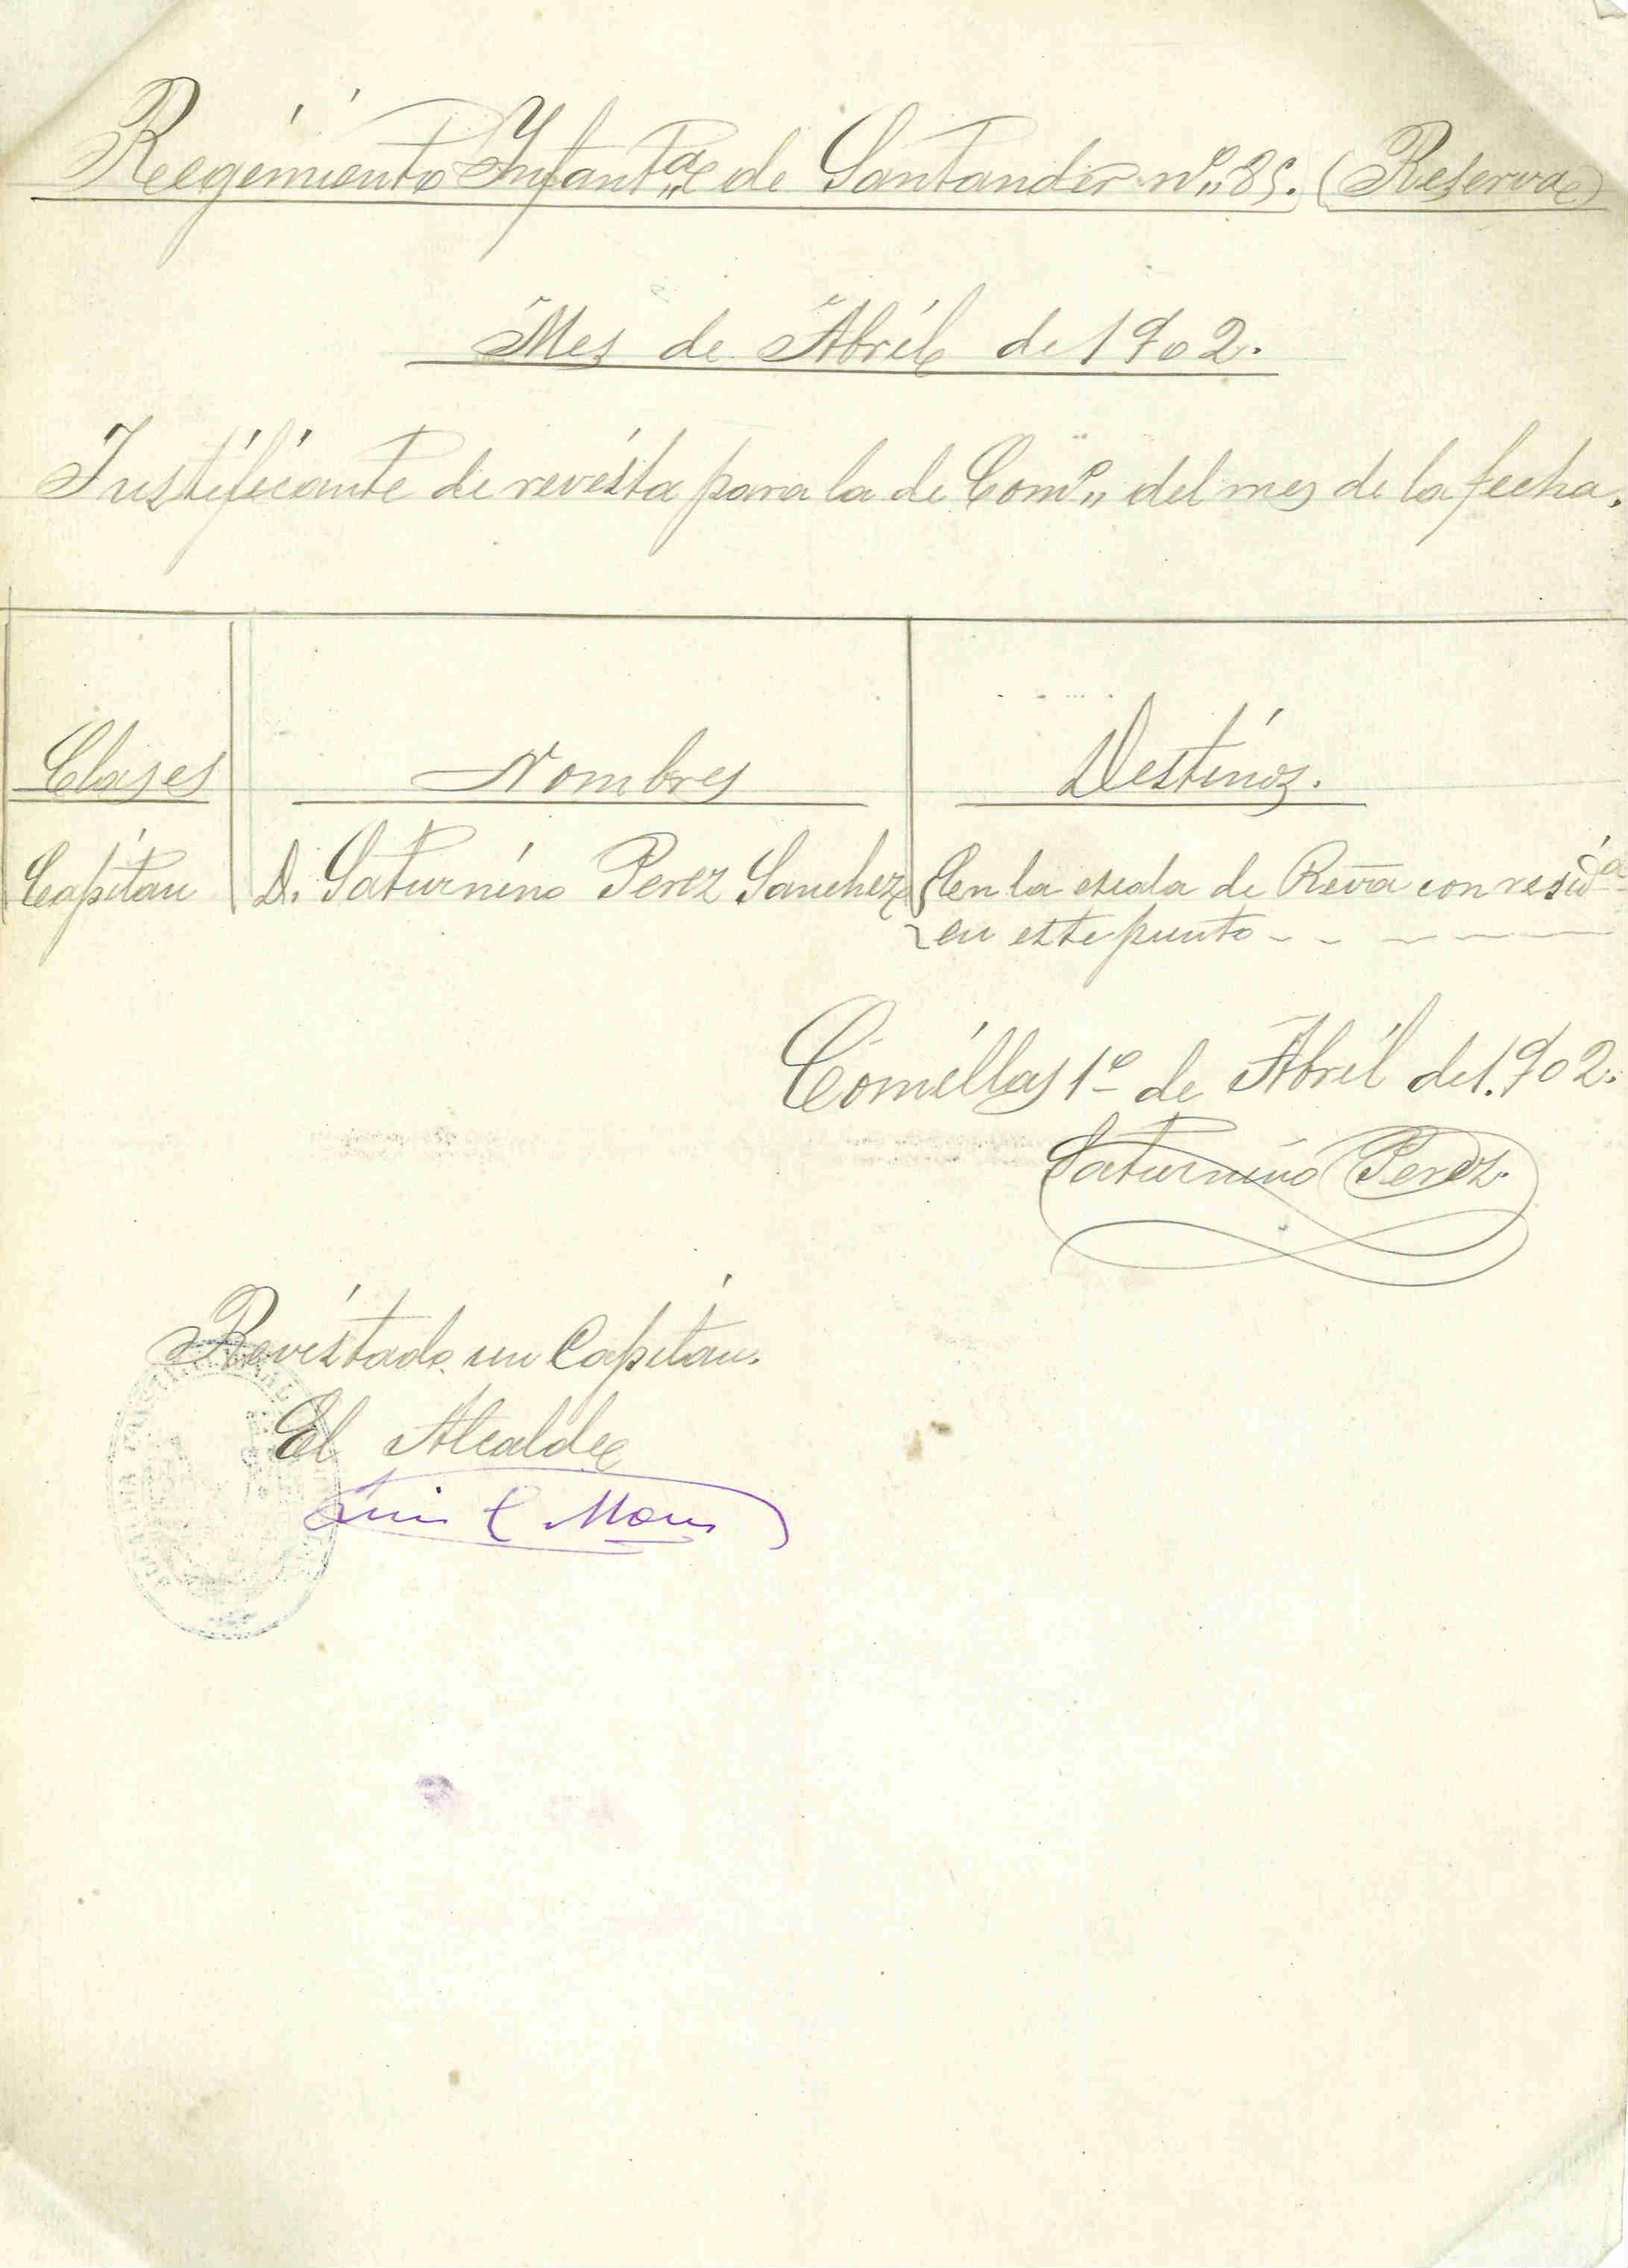 Regimiento Ynfantª de Santander nº 85. (Reserva)
Mes de Abril de 1902.
Justificante de revista para la de Comº del mes de la fecha.
Clases Nombres Destinos.
Capitan D. Saturnino Perez Sanchez En la escala de Revª con residª
en este punto
Comillas 1º de Abril de 1.902.
Saturnino Perez
Revistado un Capitan.
El Alcalde
Luis